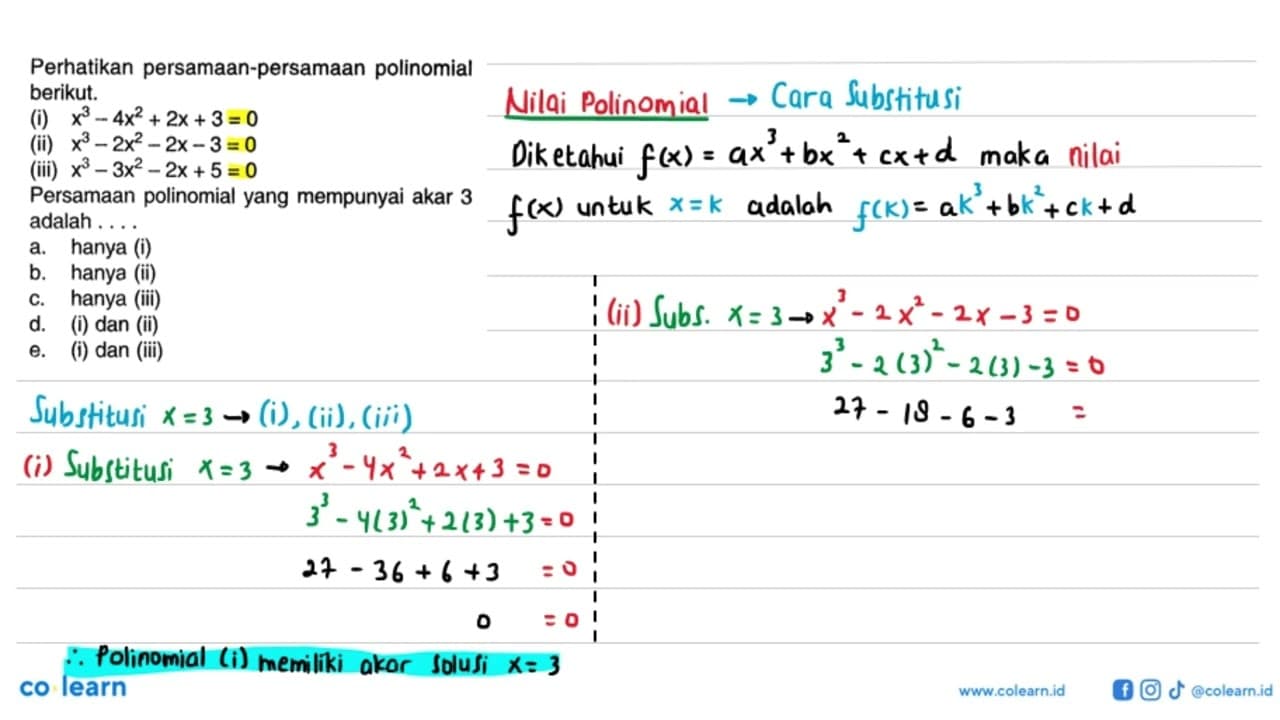 Perhatikan persamaan-persamaan polinomial
berikut.
(i) x³ – 4x² + 2x + 3 = 0
(ii) x³ – 2x² – 2x – 3 = 0
(iii) x³ – 3x² – 2x + 5 = 0
Persamaan polinomial yang mempunyai akar 3
adalah . . . .
a. hanya (i)
b. hanya (ii)
c. hanya (iii)
d. (i) dan (ii)
e. (i) dan (iii)
Nilai Polinomial → Cara Substitusi
Diketahui f(x) = ax³ + bx² + cx + d maka nilai
f(x) untuk x = k adalah f(k) = ak³ + bk² + ck + d
Substitusi x = 3 → (i), (ii), (iii)
(i) Substitusi x = 3 → x³ - 4x² + 2x + 3 = 0
3³ - 4(3)² + 2(3) + 3 = 0
27 - 36 + 6 + 3 = 0
0 = 0
∴ Polinomial (i) memiliki akar solusi x = 3
(ii) Subs. x = 3 → x³ - 2x² - 2x - 3 = 0
3³ - 2(3)² - 2(3) - 3 = 0
27 - 18 - 6 - 3 =
co learn
www.colearn.id
@colearn.id